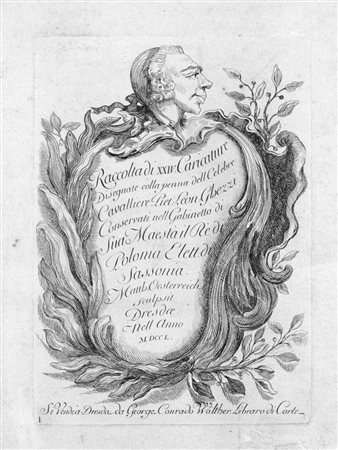 Raccolta di XXIV Caricature
Disegnate colla penna dell Celebre
Cavalliere Piet. Leon. Ghezzi
Conservati nell Gabinetto di
Sua Maestà il Re di
Polonia Elett. di
Sassonia.
Matth. Oesterreich
Sculpsit
Dresdæ.
Nell Anno
MDCCL.
Si Vend à Dresda da George Conrado Walther Libraro di Corte
1